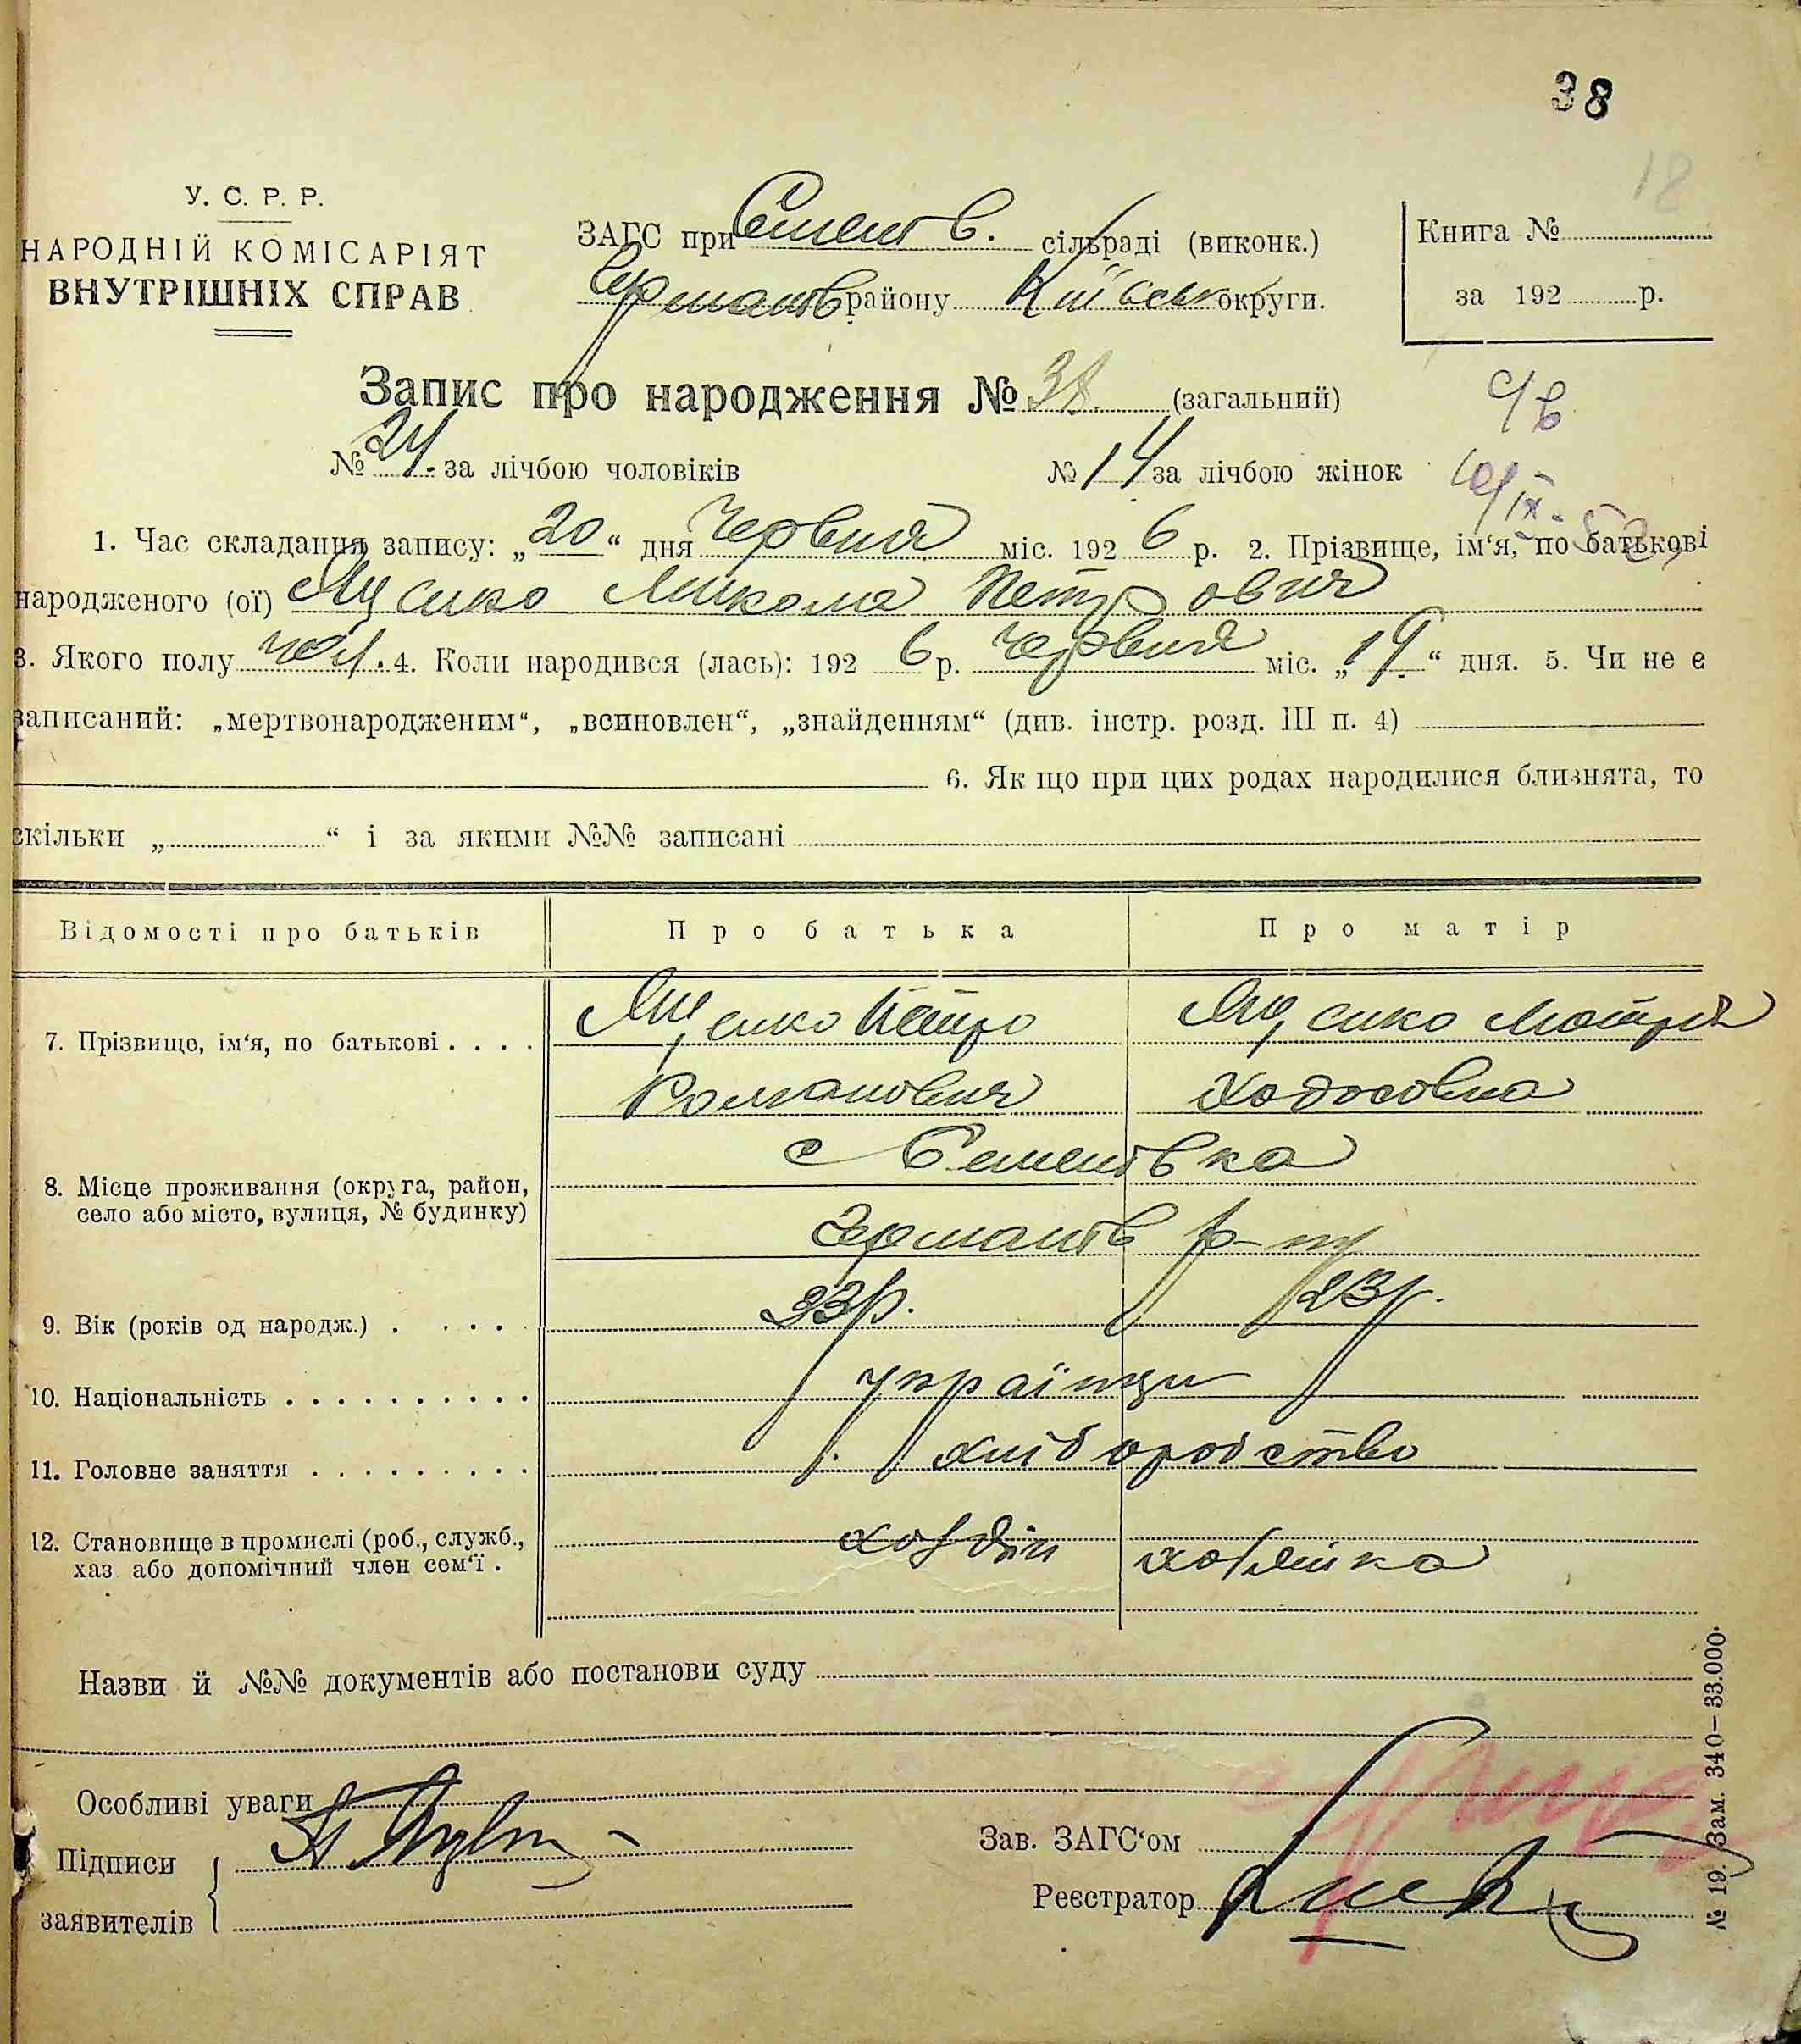 38
18
У. С. Р. Р.
НАРОДНІЙ КОМІСАРІЯТ
ВНУТРІШНІХ СПРАВ
ЗАГС при Семенів. сільраді (виконк.)
Германів району Київськ округи.
Книга №
за 192 р.
Запис про народження № 38. (загальний)
с/в
№ 24. за лічбою чоловіків № 14 за лічбою жінок
1. Час складання запису: „20“ дня Червня міс. 192 6 р. 2. Прізвище, ім‘я, по батькові
народженого (ої) Яценко Микола Петрович
3. Якого полу чол. 4. Коли народився (лась): 192 6 р. Червня міс. „19“ дня. 5. Чи не є
записаний: „мертвонародженим“, „всиновлен“, „знайденням“ (див. інстр. розд. III п. 4)
6. Як що при цих родах народилися близнята, то
скільки „ “ і за якими №№ записані
Відомості про батьків Про батька Про матір
7. Прізвище, ім‘я, по батькові . . . . Яценко Петро Яценко Мотря
Романович Ходосовна
с Семенівка
8. Місце проживання (округа, район,
село або місто, вулиця, № будинку)
Германів р-ну
9. Вік (років од народж.) . . . . . 23р. 23р.
10. Національність . . . . . . . . . . українци
11. Головне заняття . . . . . . . . . хліборобство
12. Становище в промислі (роб., служб.,
хаз або допомічний член сем‘ї .
хозяїн хозяйка
Назви й №№ документів або постанови суду
Особливі уваги
Підписи
заявителів
Зав. ЗАГС‘ом
Реєстратор
№ 19. Зам. 340–33.000.